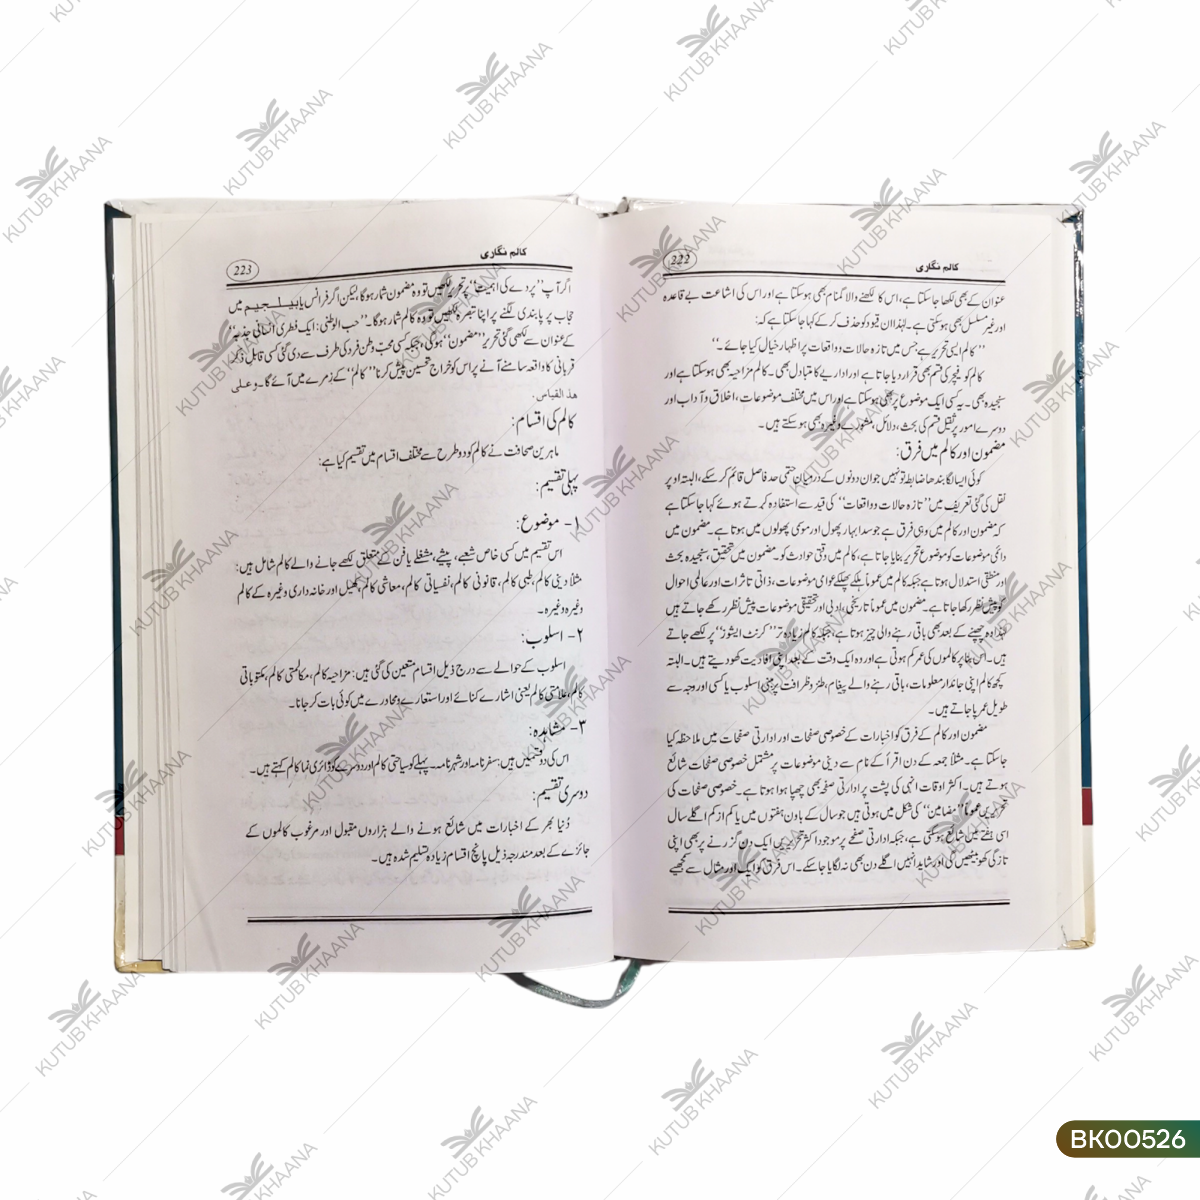 کالم نگاری
222
عنوان کے بھی لکھا جا سکتا ہے، اس کا لکھنے والا گمنام بھی ہو سکتا ہے اور اس کی اشاعت بے قاعدہ
اور غیر مسلسل بھی ہو سکتی ہے۔ لہٰذا ان قیود کو حذف کر کے کہا جا سکتا ہے کہ:
’’کالم ایسی تحریر ہے جس میں تازہ حالات و واقعات پر اظہارِ خیال کیا جائے۔‘‘
کالم کو فیچر کی قسم بھی قرار دیا جاتا ہے اور اداریے کا متبادل بھی۔ کالم مزاحیہ بھی ہو سکتا ہے اور
سنجیدہ بھی۔ یہ کسی ایک موضوع پر بھی ہو سکتا ہے اور اس میں مختلف موضوعات، اخلاق و آداب اور
دوسرے امور پر ثقیل قسم کی بحث، دلائل، مشورے وغیرہ بھی ہو سکتے ہیں۔
مضمون اور کالم میں فرق:
کوئی ایسا لگا بندھا ضابطہ تو نہیں جو ان دونوں کے درمیان حتمی حد فاصل قائم کر سکے، البتہ اوپر
نقل کی گئی تعریف میں ’’تازہ حالات و واقعات‘‘ کی قید سے استفادہ کرتے ہوئے کہا جا سکتا ہے
کہ مضمون اور کالم میں وہی فرق ہے جو سدا بہار پھول اور موسمی پھولوں میں ہوتا ہے۔ مضمون میں
دائمی موضوعات کو موضوعِ تحریر بنایا جاتا ہے، کالم میں وقتی حوادث کو۔ مضمون میں تحقیق، سنجیدہ بحث
اور منطقی استدلال ہوتا ہے جبکہ کالم میں عموماً ہلکے پھلکے عوامی موضوعات، ذاتی تاثرات اور عالمی احوال
کو پیش نظر رکھا جاتا ہے۔ مضمون میں عموماً تاریخی، ادبی اور تحقیقی موضوعات پیش نظر رکھے جاتے ہیں
لہٰذا وہ چھپنے کے بعد بھی باقی رہنے والی چیز ہوتا ہے، جبکہ کالم زیادہ تر ’’کرنٹ ایشوز‘‘ پر لکھے جاتے
ہیں۔ اس بنا پر کالموں کی عمر کم ہوتی ہے اور وہ ایک وقت کے بعد اپنی افادیت کھو دیتے ہیں۔ البتہ
کچھ کالم اپنی جاندار معلومات، باقی رہنے والے پیغام، طنز و ظرافت پر مبنی اسلوب یا کسی اور وجہ سے
طویل عمر پا جاتے ہیں۔
مضمون اور کالم کے فرق کو اخبارات کے خصوصی صفحات اور ادارتی صفحات میں ملاحظہ کیا
جا سکتا ہے۔ مثلاً جمعہ کے دن اقرأ کے نام سے دینی موضوعات پر مشتمل خصوصی صفحات شائع
ہوتے ہیں۔ اکثر اوقات انہی کی پشت پر ادارتی صفحہ بھی چھپا ہوا ہوتا ہے۔ خصوصی صفحات کی
تحریریں عموماً ’’مضامین‘‘ کی شکل میں ہوتی ہیں جو سال کے باون ہفتوں میں یا کم از کم اگلے سال
اسی ہفتے میں شائع ہو سکتی ہے، جبکہ ادارتی صفحے پر موجود اکثر تحریریں ایک دن گزرنے پر بھی اپنی
تازگی کھو بیٹھیں گی اور شاید انہیں اگلے دن بھی نہ لگایا جا سکے۔ اس فرق کو ایک اور مثال سے سمجھیے
کالم نگاری
223
اگر آپ ’’پردے کی اہمیت‘‘ پر تحریر لکھیں تو وہ مضمون شمار ہو گا، لیکن اگر فرانس یا بیلجیم میں
حجاب پر پابندی لگنے پر اپنا تبصرہ لکھیں تو وہ کالم شمار ہوگا۔ ’’حب الوطنی: ایک فطری انسانی جذبہ‘‘
کے عنوان سے لکھی گئی تحریر ’’مضمون‘‘ ہو گی، جبکہ کسی محب وطن فرد کی طرف سے دی گئی کسی قابلِ ذکر
قربانی کا واقعہ سامنے آنے پر اس کو خراجِ تحسین پیش کرنا ’’کالم‘‘ کے زمرے میں آئے گا۔ وعلی
ھذ القیاس.
کالم کی اقسام:
ماہرین صحافت نے کالم کو دو طرح سے مختلف اقسام میں تقسیم کیا ہے:
پہلی تقسیم:
۱- موضوع:
اس تقسیم میں کسی خاص شعبے، پیشے، مشغلے یا فن کے متعلق لکھے جانے والے کالم شامل ہیں:
مثلاً دینی کالم، طبی کالم، قانونی کالم، نفسیاتی کالم، معاشی کالم، کھیل اور خانہ داری وغیرہ کے کالم
وغیرہ وغیرہ۔
۲- اسلوب:
اسلوب کے حوالے سے درج ذیل اقسام متعین کی گئی ہیں: مزاحیہ کالم، مکالمتی کالم، مکتوباتی
کالم، علامتی کالم یعنی اشارے کنائے اور استعارے و محاورے میں کوئی بات کر جانا۔
۳- مشاہدہ:
اس کی دو قسمیں ہیں: سفر نامہ اور شہر نامہ۔ پہلے کو سیاحتی کالم اور دوسرے کو ڈائری نما کالم کہتے ہیں۔
دوسری تقسیم:
دُنیا بھر کے اخبارات میں شائع ہونے والے ہزاروں مقبول اور مرغوب کالموں کے
جائزے کے بعد مندرجہ ذیل پانچ اقسام زیادہ تسلیم شدہ ہیں۔
KUTUB KHAANA
BK00526